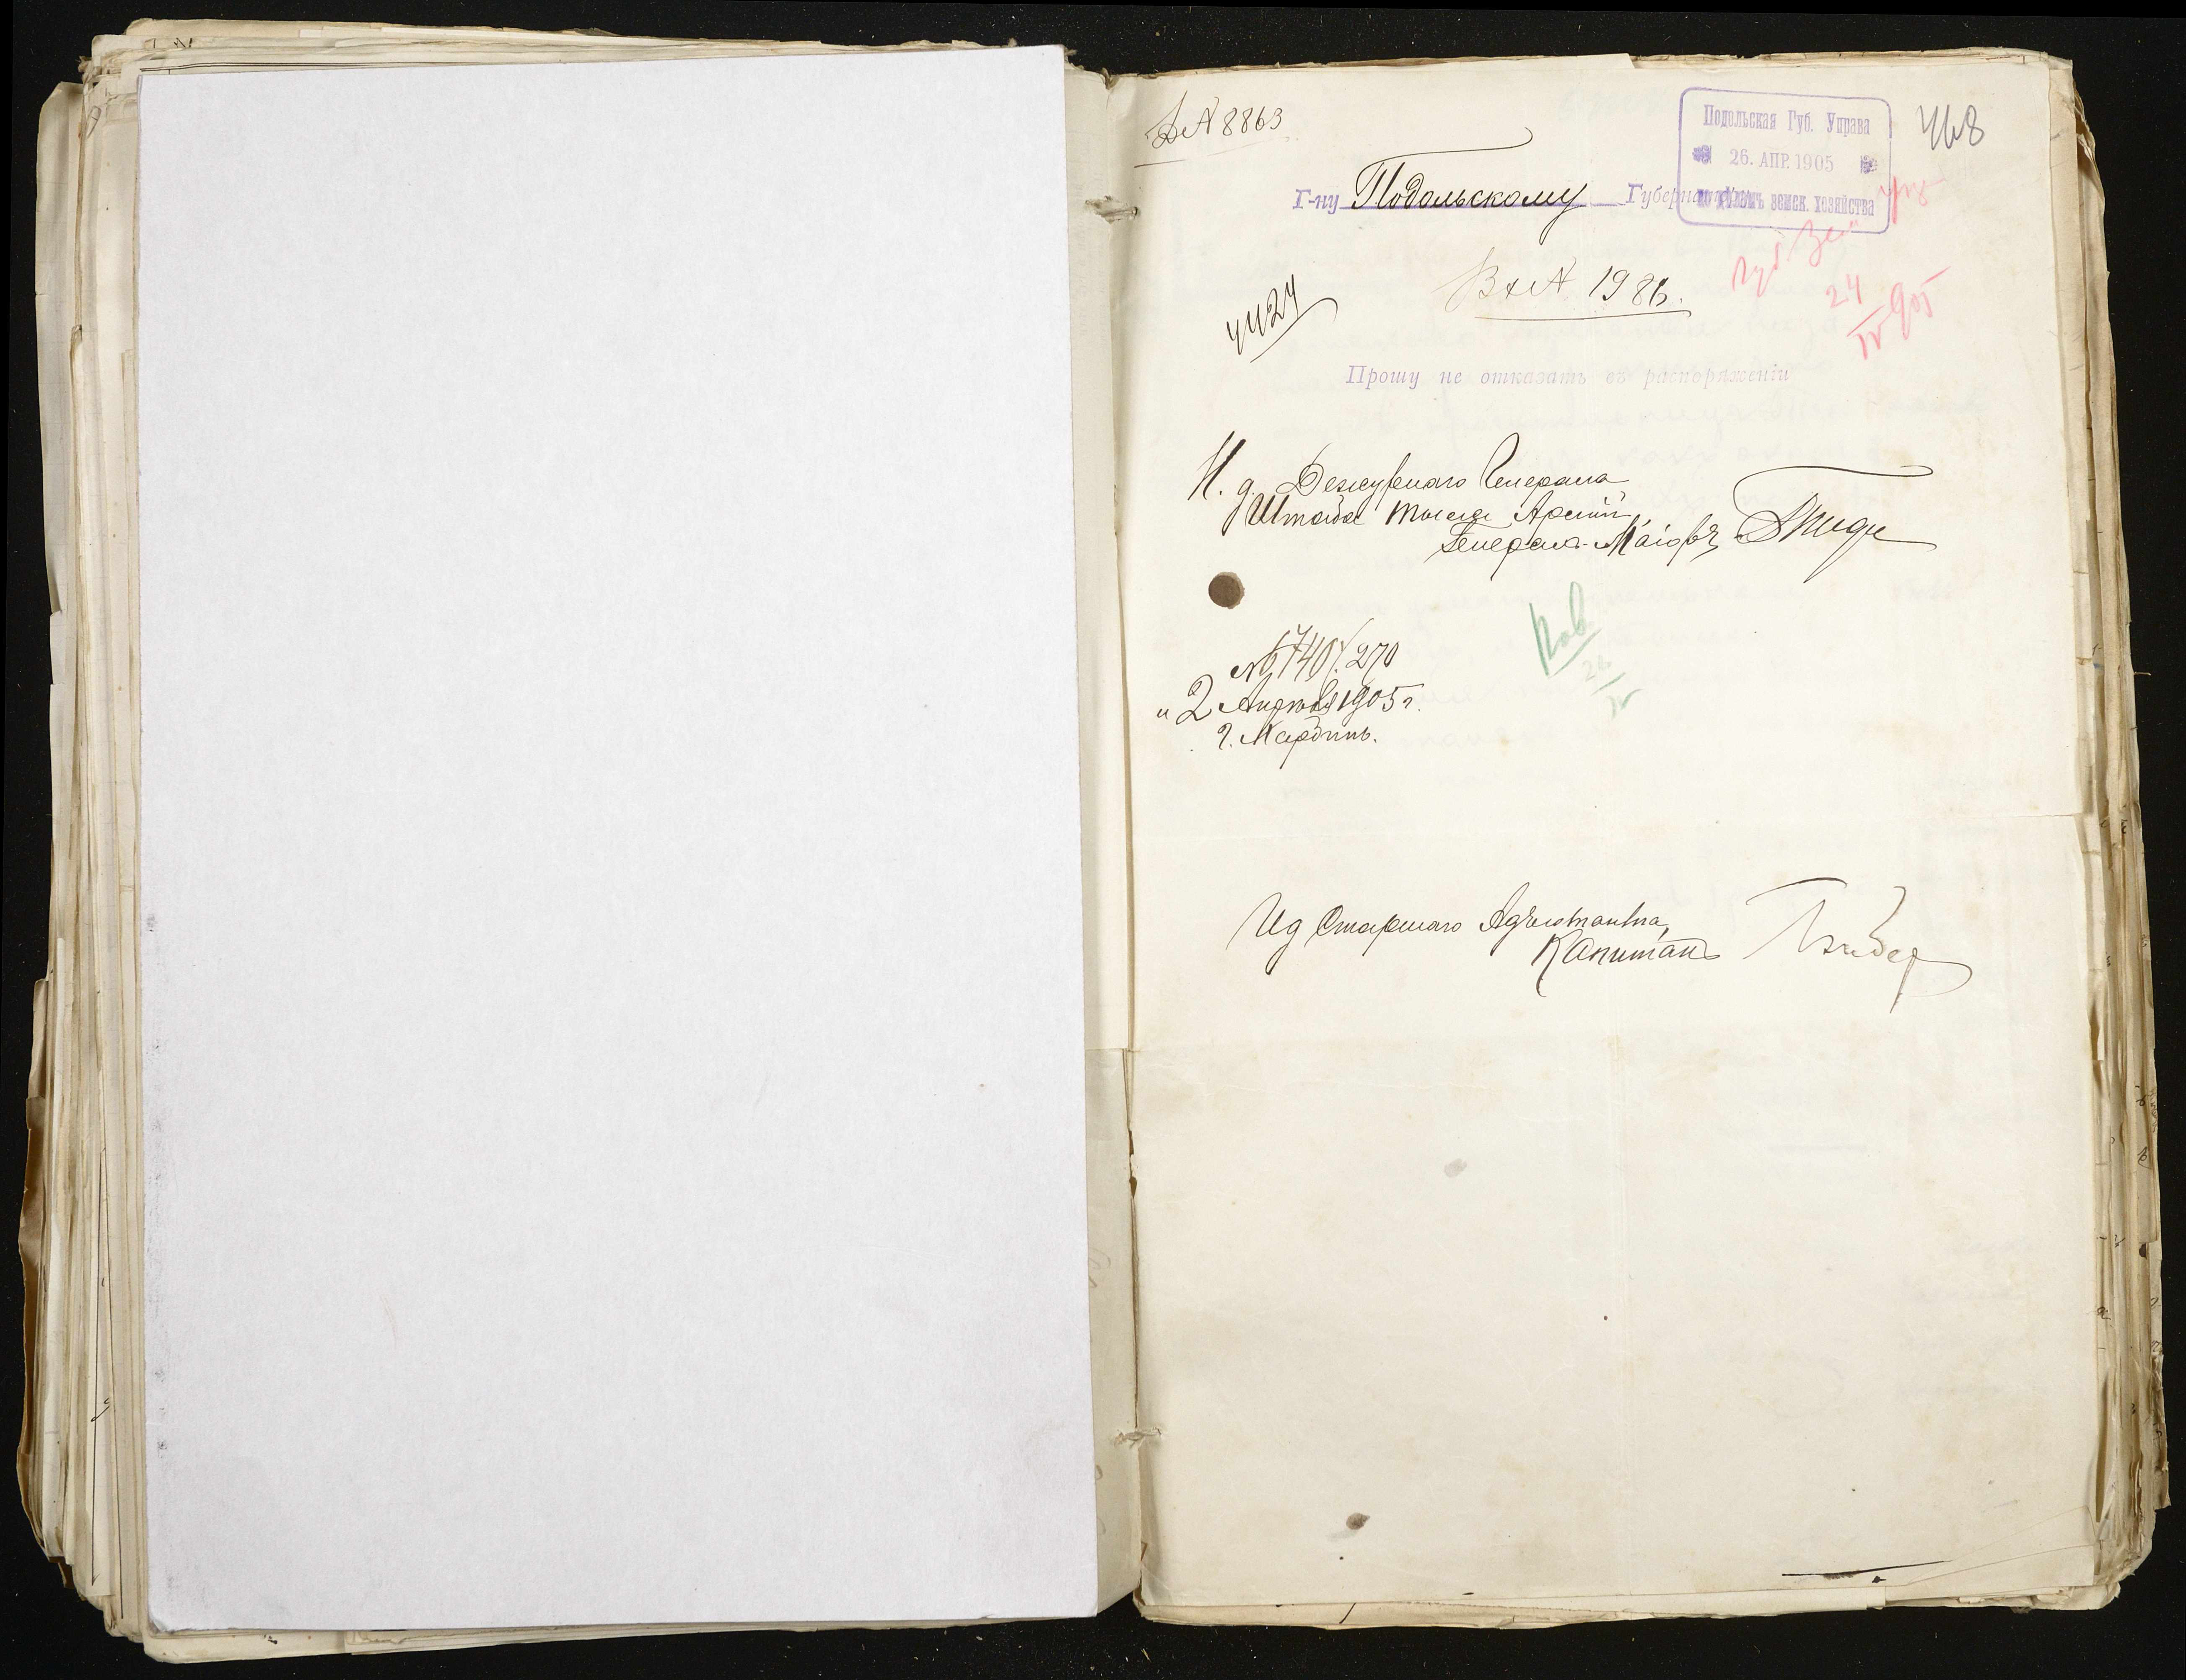 № 8863
468
Подольская Губ. Управа
26. АПР. 1905
по дѣламъ земск. хозяйства
Г-ну Подольскому Губернатору
Вх № 1986.
4424
24
IV 905
Прошу не отказать въ распоряженіи
И. д. Дежурнаго Генерала
Штаба тыла Армій,
Генералъ-Маіоръ
№ 1740/270
"2 Апрѣля 1905 г.
г. Харбинъ.
Ид Старшаго Адъютанта,
Капитанъ